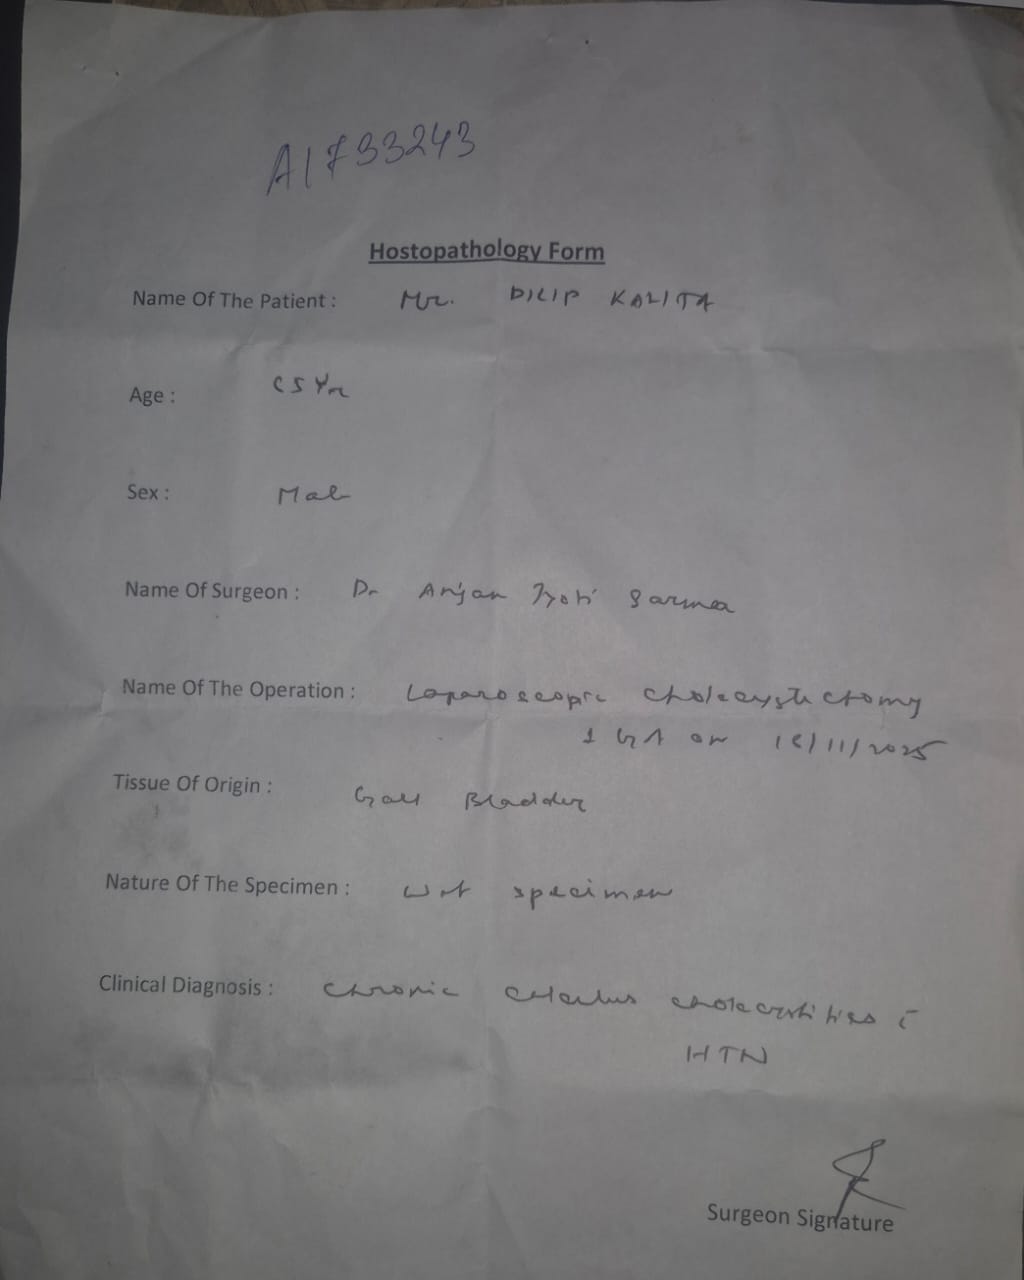 A1733243
Hostopathology Form
Name Of The Patient : Mr. DILIP KALITA
Age : 65 Yr
Sex : Male
Name Of Surgeon : Dr Anjan Jyoti Sarma
Name Of The Operation : Laparoscopic cholecystectomy
GA on /11/2025
Tissue Of Origin : Gall Bladder
Nature Of The Specimen : Wet specimen
Clinical Diagnosis : Chronic calculus cholecystities c̅
HTN
Surgeon Signature